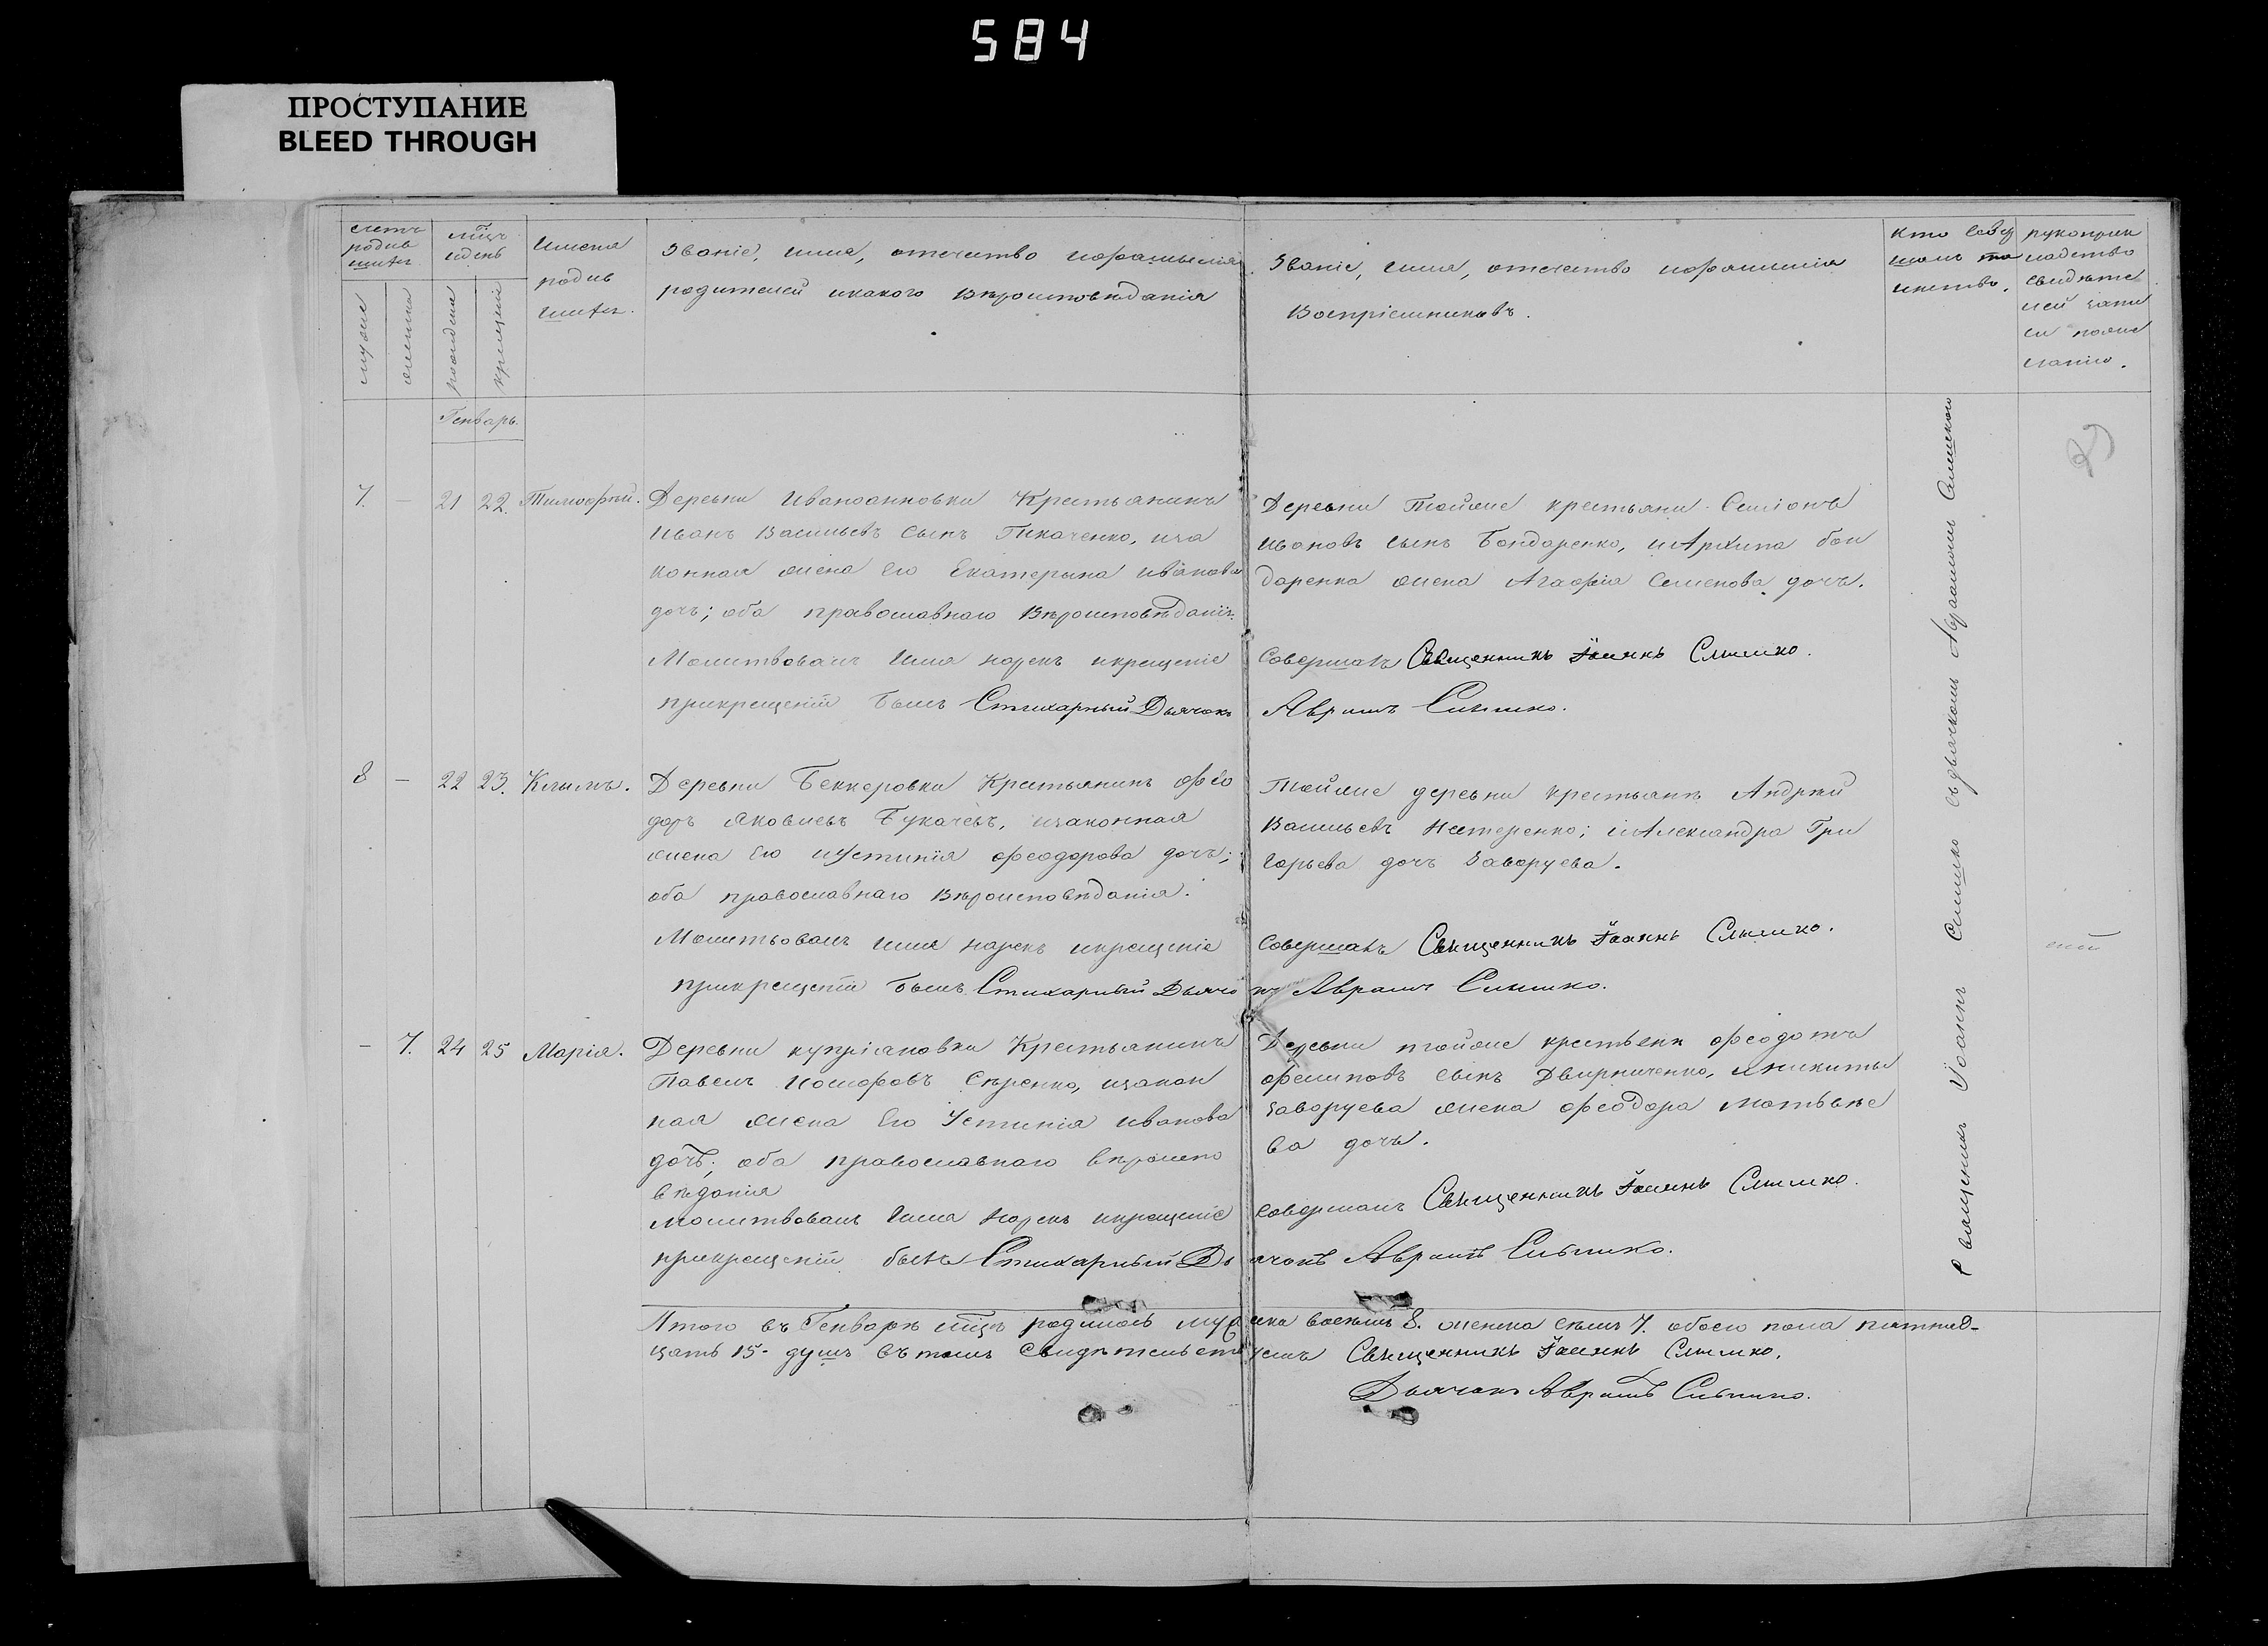 584
ПРОСТУПАНИЕ
BLEED THROUGH
счетъ родив шихъ
мужес женска
мѣцъ идень
рожден крещенія
Имена родив шихъ.
Званіе, имя, отечество ифамилія
родителей икакого вѣроисповѣданія
Званіе, имя, отечество ифамилія
Воспріемниковъ.
Кто совер шалъ та инство.
рукоприк ладство свидѣте лей запи си пожел ланію.
Генварь.
7. — 21 22. Тимофѣй.
Деревни Иваноанновки Крестьянинъ
Иванъ Васильевъ сынъ Ткаченко, иза
конная жена его Екатерина иванова
дочь; оба православнаго вѣроисповѣданія.
Молитвовалъ имя нарекъ икрещеніе
прикрещеніи былъ Стихарный Дьячокъ
Деревни тойже крестьяни Семіонъ
ивановъ сынъ Бондаренко, иАрхипа бон
даренка жена Агафія Семенова дочь.
Совершалъ Священникъ Іоаннъ Слышко.
Аврамъ Слышко.
8 — 22 23. Климъ.
Деревни Беккеровки Крестьянинъ фео
доръ Яковлевъ Букачевъ, изаконная
жена его иустинія феодорова дочь;
оба православнаго вѣроисповѣданія.
Молитвовалъ имя нарекъ икрещеніе
прикрещеніи былъ Стихарный Дьячо
Тойже деревни крестьянъ Андрей
Васильевъ Нестеренко; иАлександра Гри
горьева дочь Заворуева.
Совершалъ Священникъ Іоаннъ Слышко.
къ Аврамъ Слышко.
— 7. 24 25 Марія.
Деревни купріановки Крестьянинъ
Павелъ Іосифовъ Сѣренко, изакон
ная жена его Устинія иванова
дочь; оба православнаго вѣроиспо
вѣданія
Молитвовалъ имя нарекъ икрещеніе
прикрещеніи былъ Стихарный Дь
Деревни тойже крестьянн феодотъ
филиповъ сынъ Двирниченко, иникиты
заворуева жена феодора матвѣе
ва дочь.
Совершалъ Священникъ Іоаннъ Слышко.
ячокъ Аврамъ Слышко.
Священникъ Іоаннъ Слышко съдьячкомъ Аврамомъ Слышкого
Итого въ Генварѣ мѣцѣ родилось мужеска восемь 8. женска семь 7. обоего пола пятнад-
цать 15- душъ въ томъ свидѣтельствуемъ Священникъ Іоаннъ Слышко.
Дьячокъ Аврамъ Слышко.